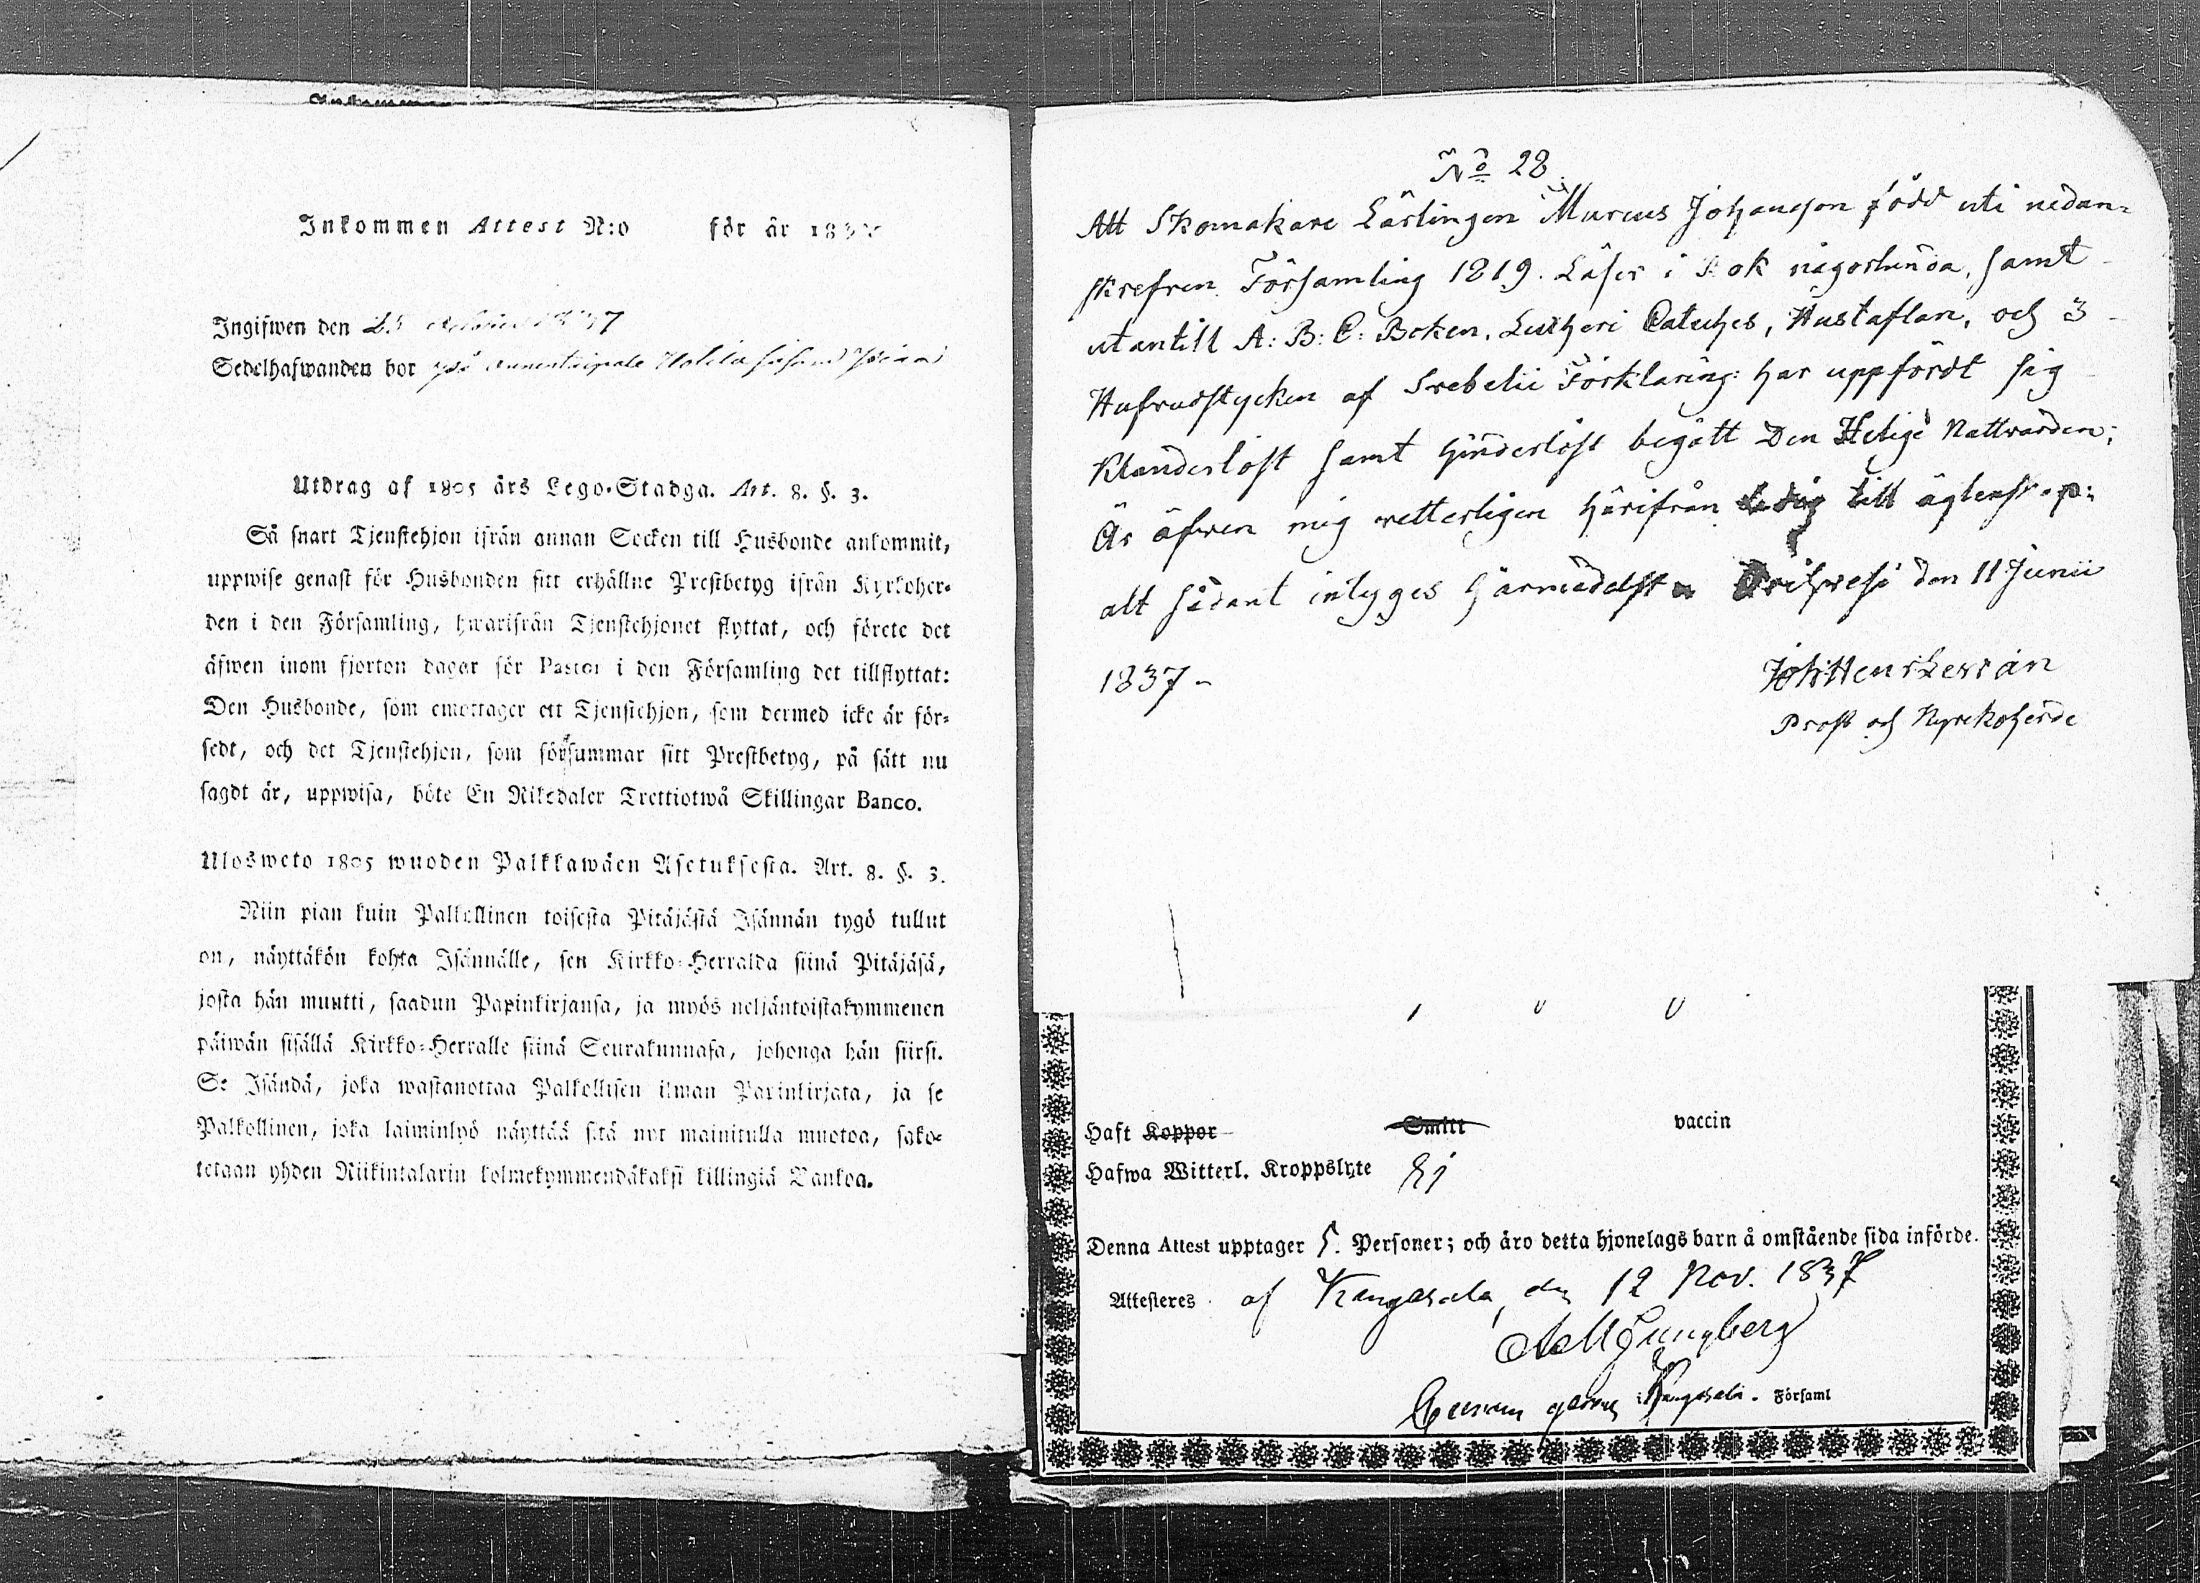 Inkommen Attest N:o för år 183
Ingifwen den 25 1837
Sedelhafwanden bor på
Utdrag af 1805 års Lego-Stadga. Art. 8. §. 3.
Så snart Tjenstehjon ifrån annan Socken till Husbonde ankommit,
uppwise genast för Husbonden sitt erhållne Prestbetyg ifrån Kyrkoher-
den i den Församling, hwarifrån Tjenstehjonet flyttat, och förete det
äfwen inom fjorton dagar för Pastor i den Församling det tillflyttat:
Den Husbonde, som emottager ett Tjenstehjon, som dermed icke är för-
sedt, och det Tjenstehjon, som försummar sitt Prestbetyg, på sätt nu
sagdt är, uppwisa, böte En Riksdaler Trettiotwå Skillingar Banco.
Ulosweto 1805 wuoden Palkkawäen Asetuksesta. Art. 8. §. 3.
Niin pian kuin Palkollinen toisesta Pitäjästä Isännän tygö tullut
on, näyttäkön kohta Isännälle, sen Kirkko-Herralda siinä Pitäjäsä,
josta hän muutti, saadun Papinkirjansa, ja myös neljäntoistakymmenen
päiwän sisällä Kirkko-Herralle siinä Seurakunnasa, johonga hän siirsi.
Se Isändä, joka wastanottaa Palkollisen ilman Papinkirjata, ja se
Palkollinen, joka laiminlyö näyttää sitä nyt mainitulla muotoa, sako-
tetaan yhden Riikintalarin kolmekymmendäkaksi killingiä Bankoa.
No 28.
Att Skomakare Lärlingen Marcus Johansson född uti nedan-
skrefven Församling 1819. Läser i Bok någorlunda, samt
utantill A: B: C: Boken, Lutheri Cateches, Hustaflan, och 3
Hufvudstycken af Svebelii Förklaring: har uppfördt sig
Klanderlöst samt hinderlöst begått Den Helige Nattvarden;
Är äfven mig vetterligen härifrån ledig till ägtenskap;
alt sådant intygges härmedelst Orihvesi den 11 Junii
1837 -
Joh Henr
Prost och Kyrckoherde
Haft Koppor Smitt vaccin
Hafwa Witterl. Kroppslyte Ej
Denna Attest upptager 5. Personer; och äro detta hjonelags barn å omstående sida införde.
Attesteres af Kangasala, den 12 Nov. 1837
Ljungberg
i Kangasala. Församl